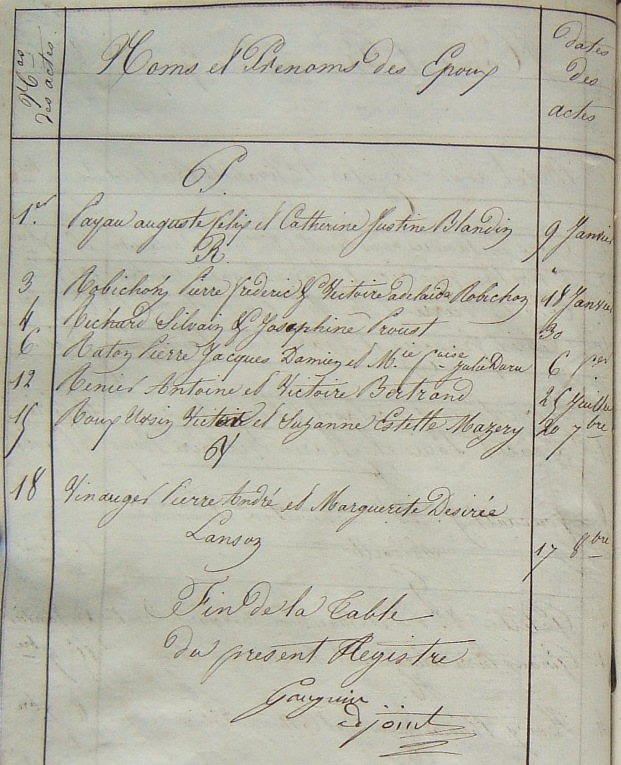 Nos des actes.
Noms et Prenoms des Epoux
dates
des
actes
P
1.er Payau auguste felix et Catherine Justine Blandin 9 Janvier
R
3 Robichon Pierre frederic & Victoire adelaide Robichon 18 Janvier
4 Richard Silvain & Josephine Proust 30 "
6 Raton Pierre Jacques Damien et M.ie Julie 6
12 Renier Antoine et Victoire Bertrand 25 Juillet
15 Roux Ursin Victor et Suzanne Estelle Mazery 20 7bre
V
18 Vinauger Pierre André et Marguerite Desirée
Lansoz 17 8bre
Fin de la Table
du present Registre
Gauguin
adjoint